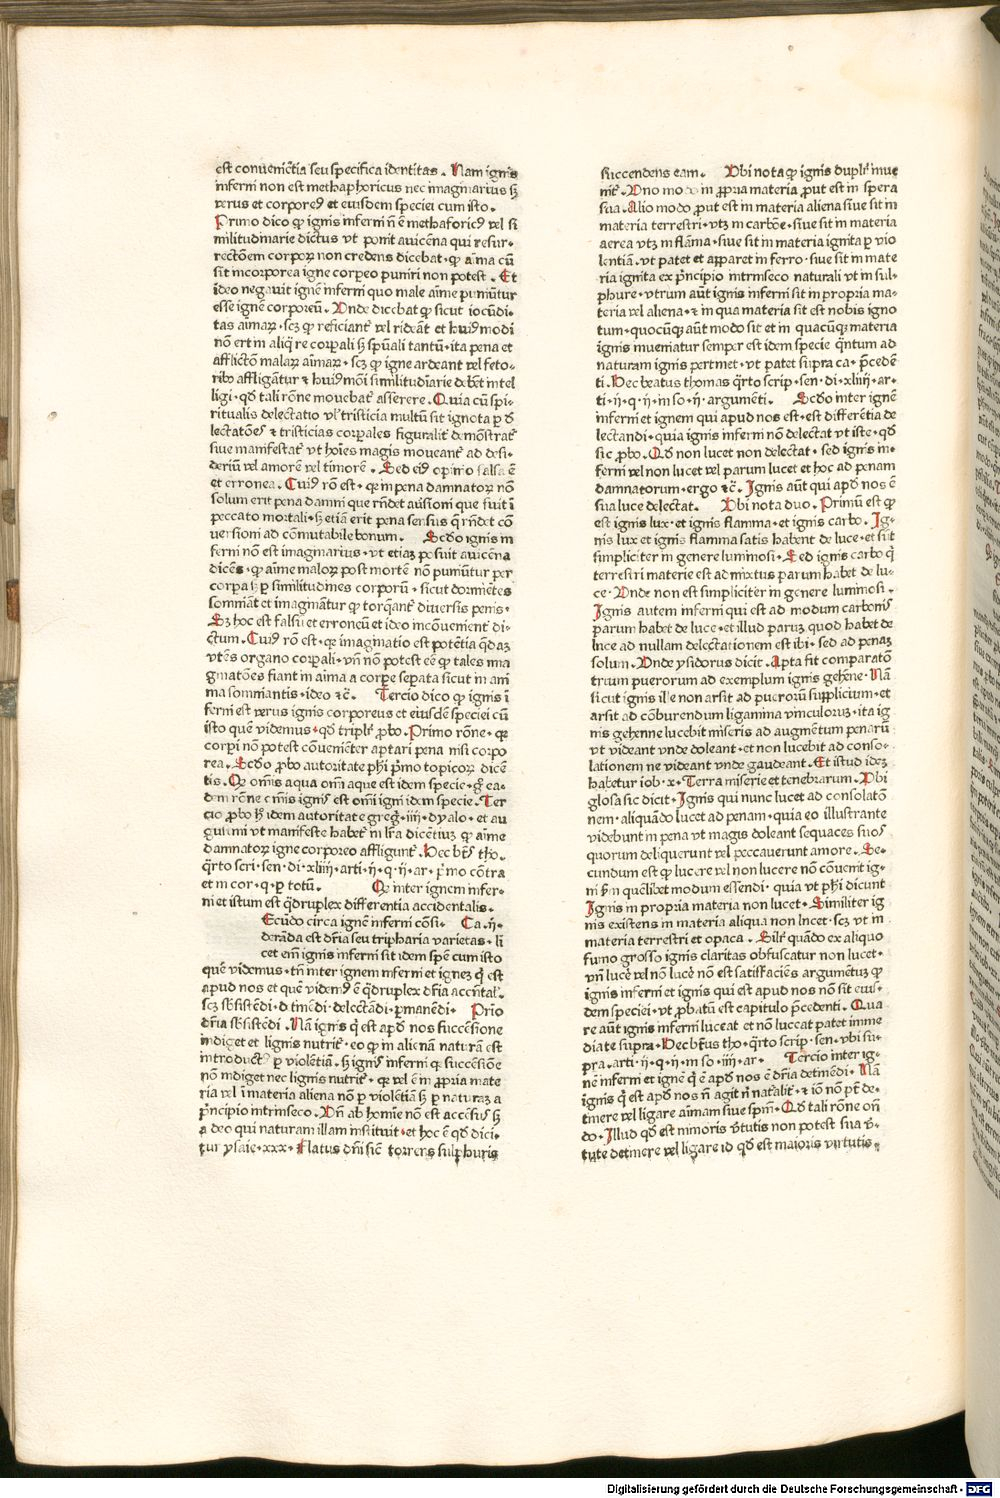 est conueniẽtia seu specifica identitas . Nam ignis
inferni non est methaphoricus nec imaginarius sꝫ
verus et corporeꝰ et eiusdem speciei cum isto .
Primo dico ꝙ ignis inferni ñ ẽ methaforicꝰ vel si
militudinarie dictus vt ponit auicẽna qui resur-
rectõem corporꝝ non credens dicebat · ꝙ aĩma cũ
sit incorporea igne corpeo puniri non potest . Et
ideo negauit ignẽ inferni quo male aĩme puniũtur
esse ignẽ corporeũ . Vnde dicebat ꝙ sicut iocũdi-
tas aĩmaꝝ · scꝫ ꝙ reficiant᷑ vel rideãt et huiꝰmodi
nõn erit in aliq̃ re corpali sꝫ spũali tantũ · ita pena et
afflictõn malaꝝ aĩmaꝝ · scꝫ ꝙ igne ardeant vel feto-
ribꝰ affligãtur ⁊ huiꝰmõi similitudĩarie debẽt intel
ligi · qđ tali rõne mouebat᷑ asserere . Quia cũ spi-
ritualis delectatio vl᷑ tristicia multũ sit ignota ꝑ đ
lectatõeꝰ ⁊ tristicias corpales figuralit᷑ demõstrat᷑
siue manifestat᷑ vt hoĩes magis moueant᷑ ad desi-
deriũ vel amorẽ vel timorẽ . Sed eiꝰ opinio falsa ẽ
et erronea . Cuiꝰ rõ est · qꝛ in pena damnatoꝝ nõ
solum erit pena damni que rñdet auersioni que fuit ĩ
peccato mortali · sꝫ etiã erit pena sensus q̃ rñdet cõ
uersioni ad cõmutabile bonum . Scđo ignis in
ferni nõ est imaginarius · vt etiaꝫ posuit auicẽna
dicẽs · ꝙ aĩme maloꝝ post mortẽ nõ puniũtur per
corpa sꝫ ꝑ similitudines corporũ · sicut dormiẽtes
somniãt et imaginãtur ꝙ torqant᷑ diuersis penis ·
Sꝫ hoc est falsũ et erroneũ et ideo incõuenient᷑ di-
ctum . Cuiꝰ rõ est · qꝛ imaginatio est potẽtia q̃daꝫ
vtẽs organo corpali · vñ nõ potest eẽ ꝙ tales ima
ginatões fiant in aĩma a corpe sepata sicut in ani
ma somniantis · ideo ⁊c̃ . Tercio dico ꝙ ignis ĩ
ferni est verus ignis corporeus et eiusdẽ speciei cũ
isto quẽ videmus · qđ triplr᷑ pbo · Primo rõne · qꝛ
corpĩ nõ potest cõueniẽter aptari pena nisi corpo
rea . Scđo pbo autoritate phĩ pⁱmo topicoꝝ dicẽ
tis . Qꝛ omĩs aqua omĩ aque est idem specie · g̃ ea-
dem rõne omĩs igniꝰ est omĩ igni idem specie . Ter
cio pbo hꝰ idem autoritate greg̃ · iiij · dyalo · et au
gustini vt manifeste habet᷑ in lr̃a dicẽtiuꝫ ꝙ aĩme
damnatoꝝ igne corporeo affligunt᷑ . Hec bt̃s tho ·
q̃rto scri · sen · di · xliiij · arti · ij · q · ij · ar · pⁱmo cõtra
et in cor · q · ꝑ totũ . Qꝛ inter ignem infer-
ni et istum est q̃druplex differentia accidentalis .
Ecũdo circa ignẽ inferni cõsi · Ca · ij ·
derãda est dr̃ia seu tripharia varietas · li
cet em̃ ignis inferni sit idem spẽe cum isto
quẽ videmus · tñ inter ignem inferni et igneꝫ q̃ est
apud nos et quẽ videmꝰ ẽ q̃druplex dr̃ia accñtal᷑ ·
scꝫ sb̃sistẽdi · detinẽdi · delectãdi · ꝑmanẽdi · Prĩo
dr̃ia sb̃sistẽdi . Nã ignis q̃ est apđ nos succẽsione
indiget et lignis nutrit᷑ · eo ꝙ in alienã naturã est
introductꝰ ꝑ violẽtiã . sꝫ igniꝰ inferni q̃ succẽsiõe
nõn indiget nec lignis nutrit᷑ · qꝛ vel ẽ in propria mate
ria vel ĩ materia aliena nõn ꝑ violẽtiã sꝫ ꝑ naturaꝫ a
pⁱncipio intrinseco . Vñ ab homĩe nõn est accẽsuꝰ sꝫ
a deo qui naturam illam instituit · et hoc ẽ qđ dici-
tur ysaie · xxx · Flatus dñi sicũ torrens sulphuris
succendens eam . Vbi nota ꝙ ignis duplr᷑ inue
nit᷑ . Vno modo in propria materia prout est in spera
sua . Alio modo prout est in materia aliena siue sit in
materia terrestri · vtꝫ in carbõe · siue sit in materia
aerea vtꝫ in flãma · siue sit in materia ignita ꝑ vio
lentiã · vt patet et apparet in ferro · siue sit in mate
ria ignita ex pⁱncipio intrinseco naturali vt in sul-
phure · vtrum aũt ignis inferni sit in propria ma-
teria vel aliena · ⁊ in qua materia sit est nobis igno
tum · quocũqꝫ aũt modo sit et in quacũqꝫ materia
ignis inueniatur semper est idem specie q̃ntum ad
naturam ignis pertinet · vt patet supra ca · p̃cedẽ
ti . Hec beatus thomas q̃rto scrip · sen · di · xliiij · ar-
ti · ij · q · ij · in so · ij · argumẽti . Scđo inter ignẽ
inferni et ignem qui apud nos est · est differẽtia de
lectandi · quia ignis inferni nõ delectat vt iste · qđ
sic pbo . Qđ non lucet non delectat · sed ignis in-
ferni vel non lucet vel parum lucet et hoc ad penam
damnatorum · ergo ⁊c̃ . Ignis aũt qui apđ nos ẽ
sua luce delectat . Vbi nota duo . Primũ est ꝙ
est ignis lux · et ignis flamma · et ignis carbo . Ig-
nis lux et ignis flamma satis habent de luce · et sũt
simpliciter in genere luminosi . Sed ignis carbo q̃
terrestri materie est admixtus parum habet de lu-
ce · Vnde non est simpliciter in genere luminosi .
Ignis autem inferni qui est ad modum carboniꝰ
parum habet de luce · et illud paruꝫ quod habet de
luce ad nullam delectationem est ibi · sed ad penaꝫ
solum . Vnde ysidorus dicit . Apta fit comparatõ
trium puerorum ad exemplum ignis gehẽne · Nã
sicut ignis ille non arsit ad pueroruꝫ supplicium · et
arsit ad cõburendum ligamina vinculoruꝫ · ita ig
nis gehenne lucebit miseris ad augmentum penarũ
vt videant vnde doleant · et non lucebit ad conso-
lationem ne videant vnde gaudeant . Et istud ideꝫ
habetur iob · x · Terra miserie et tenebrarum . Vbi
glosa sic dicit · Ignis qui nunc lucet ad consolatõ
nem · aliquãdo lucet ad penam · quia eo illustrante
videbunt in pena vt magis doleant sequaces suoꝰ
quorum deliquerunt vel peccauerunt amore . Se-
cundum est ꝙ lucere vel non lucere nõ cõuenit ig-
ni ẜm quẽlibet modum essẽdi · quia vt phĩ dicunt
Ignis in propria materia non lucet . Similiter ig
nis existens in materia aliqua non lucet · scꝫ vt in
materia terrestri et opaca . Silr᷑ quãdo ex aliquo
fumo grosso ignis claritas obfuscatur non lucet ·
vñ lucẽ vel nõ lucẽ nõ est satiffaciẽs argumẽtuꝫ ꝙ
ignis inferni et ignis qui est apud nos nõ sit eius-
dem speciei · vt probatũ est capitulo p̃cedenti . Qua
re aũt ignis inferni luceat et nõ luceat patet imme
diate supra · Hec bt̃us tho · q̃rto scrip · sen · vbi su-
pra · arti · ij · q · ij · in so · iiij · ar · Tercio inter ig-
nẽ inferni et ignẽ q̃ ẽ apđ nos ẽ dr̃ia detinẽdi · Nã
ignis q̃ est apđ nos ñ agit ñ nat᷑alit᷑ · ⁊ iõ nõ pt̃ de-
tinere vel ligare aĩmam siue spm̃ · Qđ tali rõne on̄
do · Illud qđ est minoris v̄tutis non potest sua v̄-
tute detinere vel ligare id qđ est maioris virtutis ·
Digitalisierung gefördert durch die Deutsche Forschungsgemeinschaft - DFG